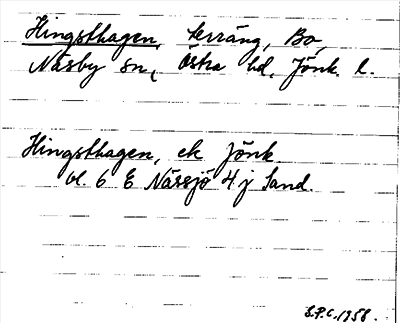 Hingsthagen, terräng, Bo,
Näsby sn, Östra hd, Jönk. l.
Hingsthagen, ek Jönk
bl. 6 E Nässjö 4 j Sand.
S.P.C. 1958.